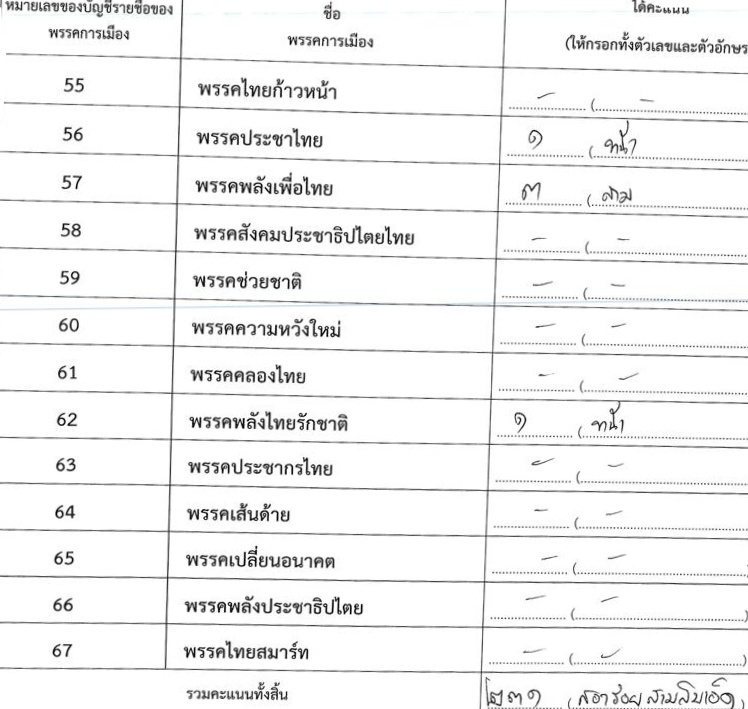 หมายเลขของบัญชีรายชื่อของ
พรรคการเมือง
ชื่อ
พรรคการเมือง
ได้คะแนน
(ให้กรอกทั้งตัวเลขและตัวอักษร
55 พรรคไทยก้าวหน้า - ( -
56 พรรคประชาไทย ๑ (
57 พรรคพลังเพื่อไทย ๓ ( สาม
58 พรรคสังคมประชาธิปไตยไทย - ( -
59 พรรคช่วยชาติ - ( -
60 พรรคความหวังใหม่ - ( -
61 พรรคคลองไทย - ( -
62 พรรคพลังไทยรักชาติ ๑ (
63 พรรคประชากรไทย - ( -
64 พรรคเส้นด้าย - ( -
65 พรรคเปลี่ยนอนาคต - ( -
66 พรรคพลังประชาธิปไตย - ( - )
67 พรรคไทยสมาร์ท - ( - )
รวมคะแนนทั้งสิ้น ๒๓๑ ( สองร้อยสามสิบเอ็ด )